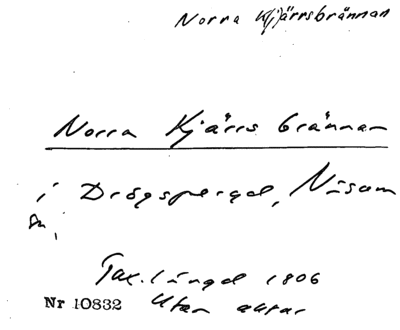 Norra Kjärrsbrännan
Norra Kjärrs brännan
i Drögsperyd, Näsum
sn,
Tax.längd 1806
Nr 10832 Utan